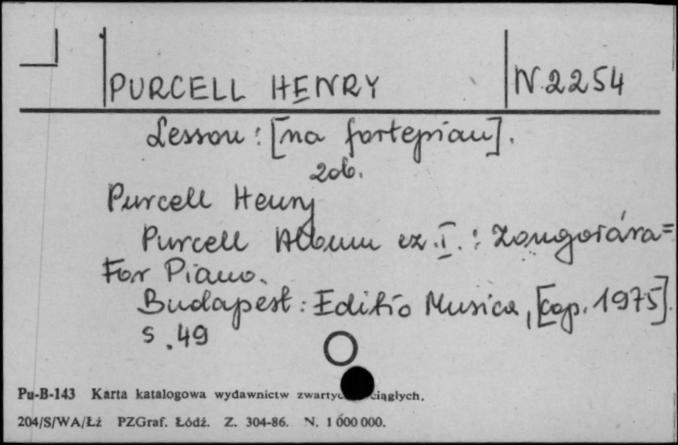 PURCELL HENRY N.2254
Lesson : [na fortepian].
zob.
Purcell Henry
Purcell Album cz. I. : Zongorára =
For Piano.
Budapest : Editio Musica, [cop. 1975].
s. 49
Pu-B-143 Karta katalogowa wydawnictw ciągłych.
204/S/WA/Łż PZGraf. Łódź. Z. 304-86. N. 1 000 000.